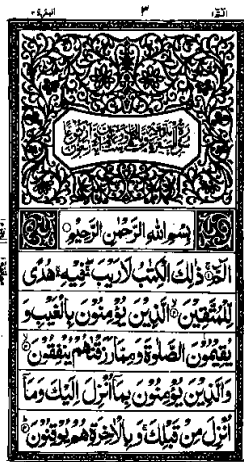 الٓمّٓ ۱ ۳ البقرة ۲
بِسْمِ اللهِ الرَّحْمٰنِ الرَّحِيْمِ
الٓمّٓ ۚ ذٰلِكَ الْكِتٰبُ لَا رَيْبَ ۛ فِيْهِ ۛ هُدًى
لِّلْمُتَّقِيْنَ ۙ الَّذِيْنَ يُؤْمِنُوْنَ بِالْغَيْبِ وَ
يُقِيْمُوْنَ الصَّلٰوةَ وَمِمَّا رَزَقْنٰهُمْ يُنْفِقُوْنَ ۙ
وَالَّذِيْنَ يُؤْمِنُوْنَ بِمَآ اُنْزِلَ اِلَيْكَ وَمَآ
اُنْزِلَ مِنْ قَبْلِكَ ۚ وَبِالْاٰخِرَةِ هُمْ يُوْقِنُوْنَ ۗ